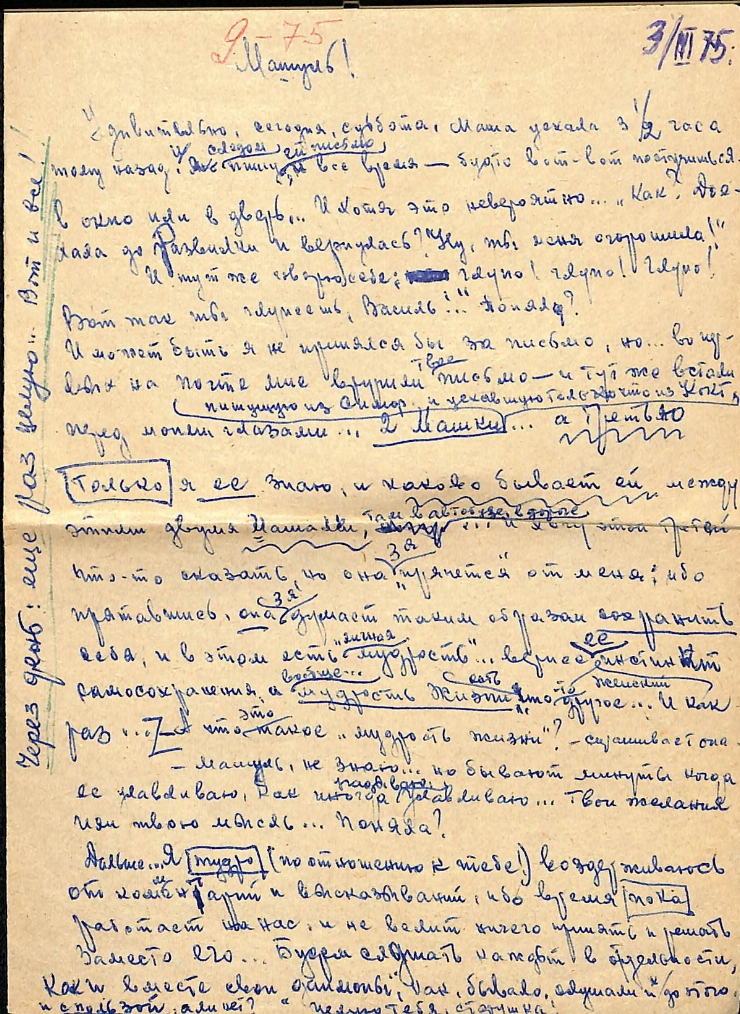 9-75
3/VI 75.
Машуль!
Удивительно, сегодня, суббота, Маша уехала 3 1/2 часа
следом ей письмо
тому назад. Я пишу, и все время — будто вот-вот постучишься
в окно или в дверь... И хотя это невероятно... "Как? Дое-
хала до Развилки и вернулась? Ну, ты меня огорошила!"
И тут же говорю себе: глупо! глупо! глупо!
Вот так ты глупеешь, Василь!..." Поняла?
И может быть я не принялся бы за письмо, но...
твое
на почте мне вручили письмо — и тут же встали
пишущую из Симф. и уехавшую только что из Кокт.
перед моими глазами... 2 Машки... а третью
только я ее знаю, и каково бывает ей между
этими двумя Машами, там в автобусе, в дороге ... и я хочу этой третьей
что-то сказать, но она "прячется" от меня; ибо
3-я
прятавшись, она думает таким образом сохранить
3-я
себя, и в этом есть "личная мудрость"... вернее ее инстинкт
женский
самосохранения, а мудрость жизни, это другое... И как
вообще... есть то
раз ... — А что это такое "мудрость жизни"? — спрашивает она
— Машуль, не знаю... но бывают минуты когда
ее улавливаю, как иногда улавливаю... твои желания
или твою мысль... Поняла?
Дальше... Я мудро (по отношению к тебе!) воздерживаюсь
от комментарий и высказываний, ибо время пока
работает на нас, и не велит ничего принять и решать
заместо его... Будем слушать каждый в отдельности,
как и вместе свои даймоны", как, бывало, слушали и до этого,
и с пользой, али нет? целую тебя, старушка!
Через день: еще раз целую... Вот и все!